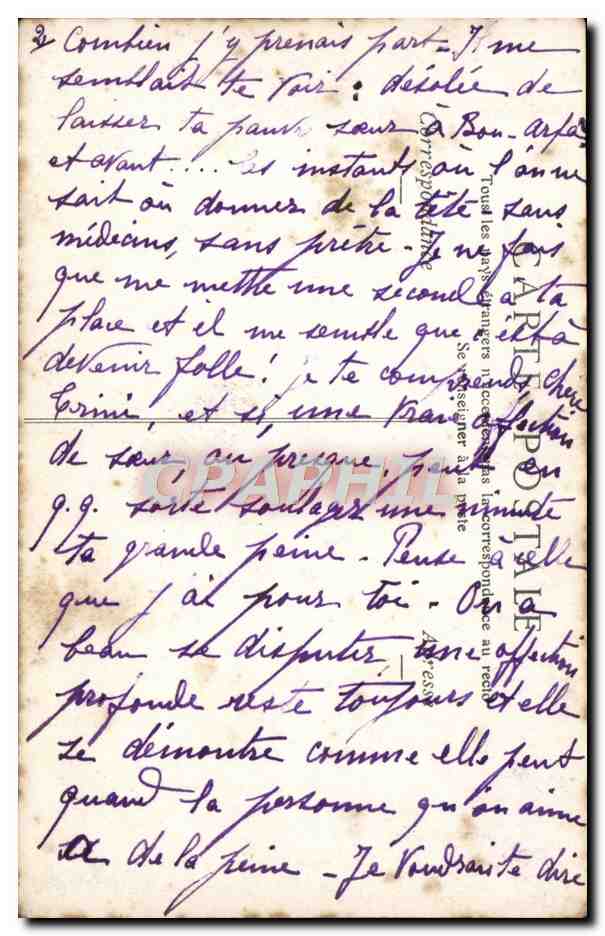 2/ Combien j'y prenais part - Il me
semblait te voir : désolée de
laisser ta pauvre sœur à Bou-Arfa
et avant .... les instants où l'on ne
sait où donner de la tête sans
médecins, sans prêtre - Je ne fais
que me mettre une seconde à ta
place et il me semble que c'est à
devenir folle ! je te comprends, chère
et si, une vraie affection
de sœur, ou presque, peut en
q.q. sorte soulager une minute
ta grande peine - Pense à celle
que j'ai pour toi - On a
beau se disputer, une affection
profonde reste toujours et elle
se démontre comme elle peut
quand la personne qu'on aime
a de la peine - Je voudrais te dire
CARTE POSTALE
Tous les pays étrangers n'acceptent pas la correspondance au recto
Se renseigner à la poste
Correspondance
Adresse
CPAPHIL